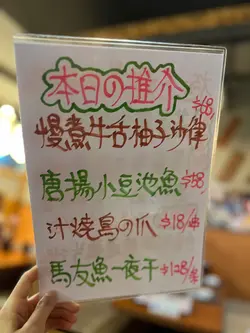 本日の推介
$68/
慢煮牛舌柚子沙律
唐揚小豆池魚 $58
汁燒鳥の爪 $18/串
馬友魚一夜干 $128/条